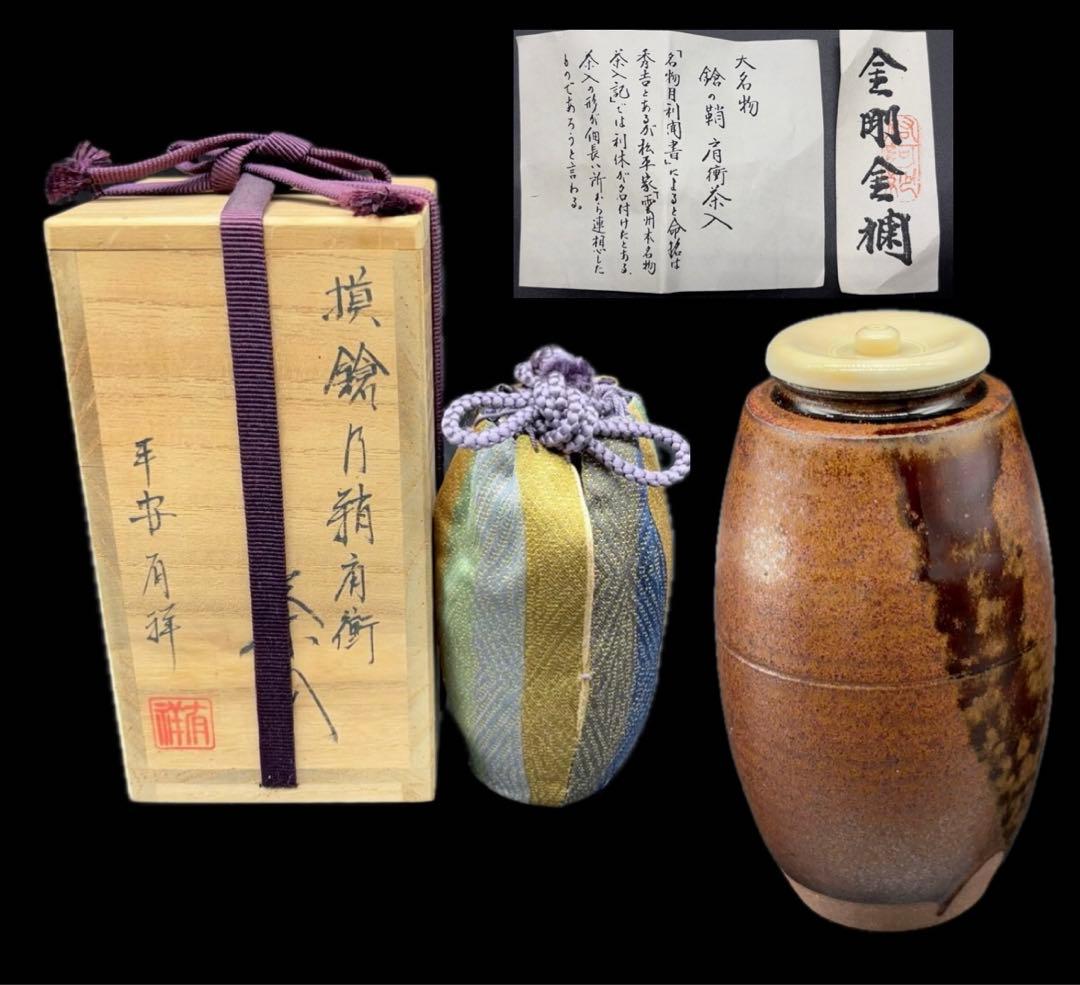 大名物
鎗の鞘 肩衝茶入
「名物目利聞書」によると命銘は
秀吉とあるが松平家「雲州木名物
茶入記」では利休が名付けたとある、
茶入の形が細長い所から連想した
ものであろうと言わる。
金剛金襴
摸鎗乃鞘肩衝
茶入
平安 有祥
有祥